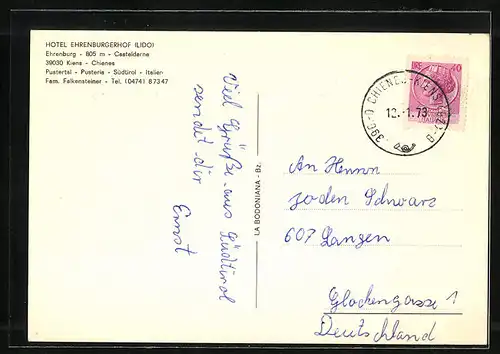 HOTEL EHRENBURGERHOF (LIDO)
Ehrenburg - 805 m - Casteldarne
39030 Kiens - Chienes
Pustertal - Pusteria - Südtirol - Italien
Fam. Falkensteiner - Tel. (0474) 87347
Viel Grüße aus Südtirol
sendet dir
Ernst
LA BODONIANA - Bz.
40
12.-1.73
An Herrn
Schwarz
607 Langen
Glockengasse 1
Deutschland